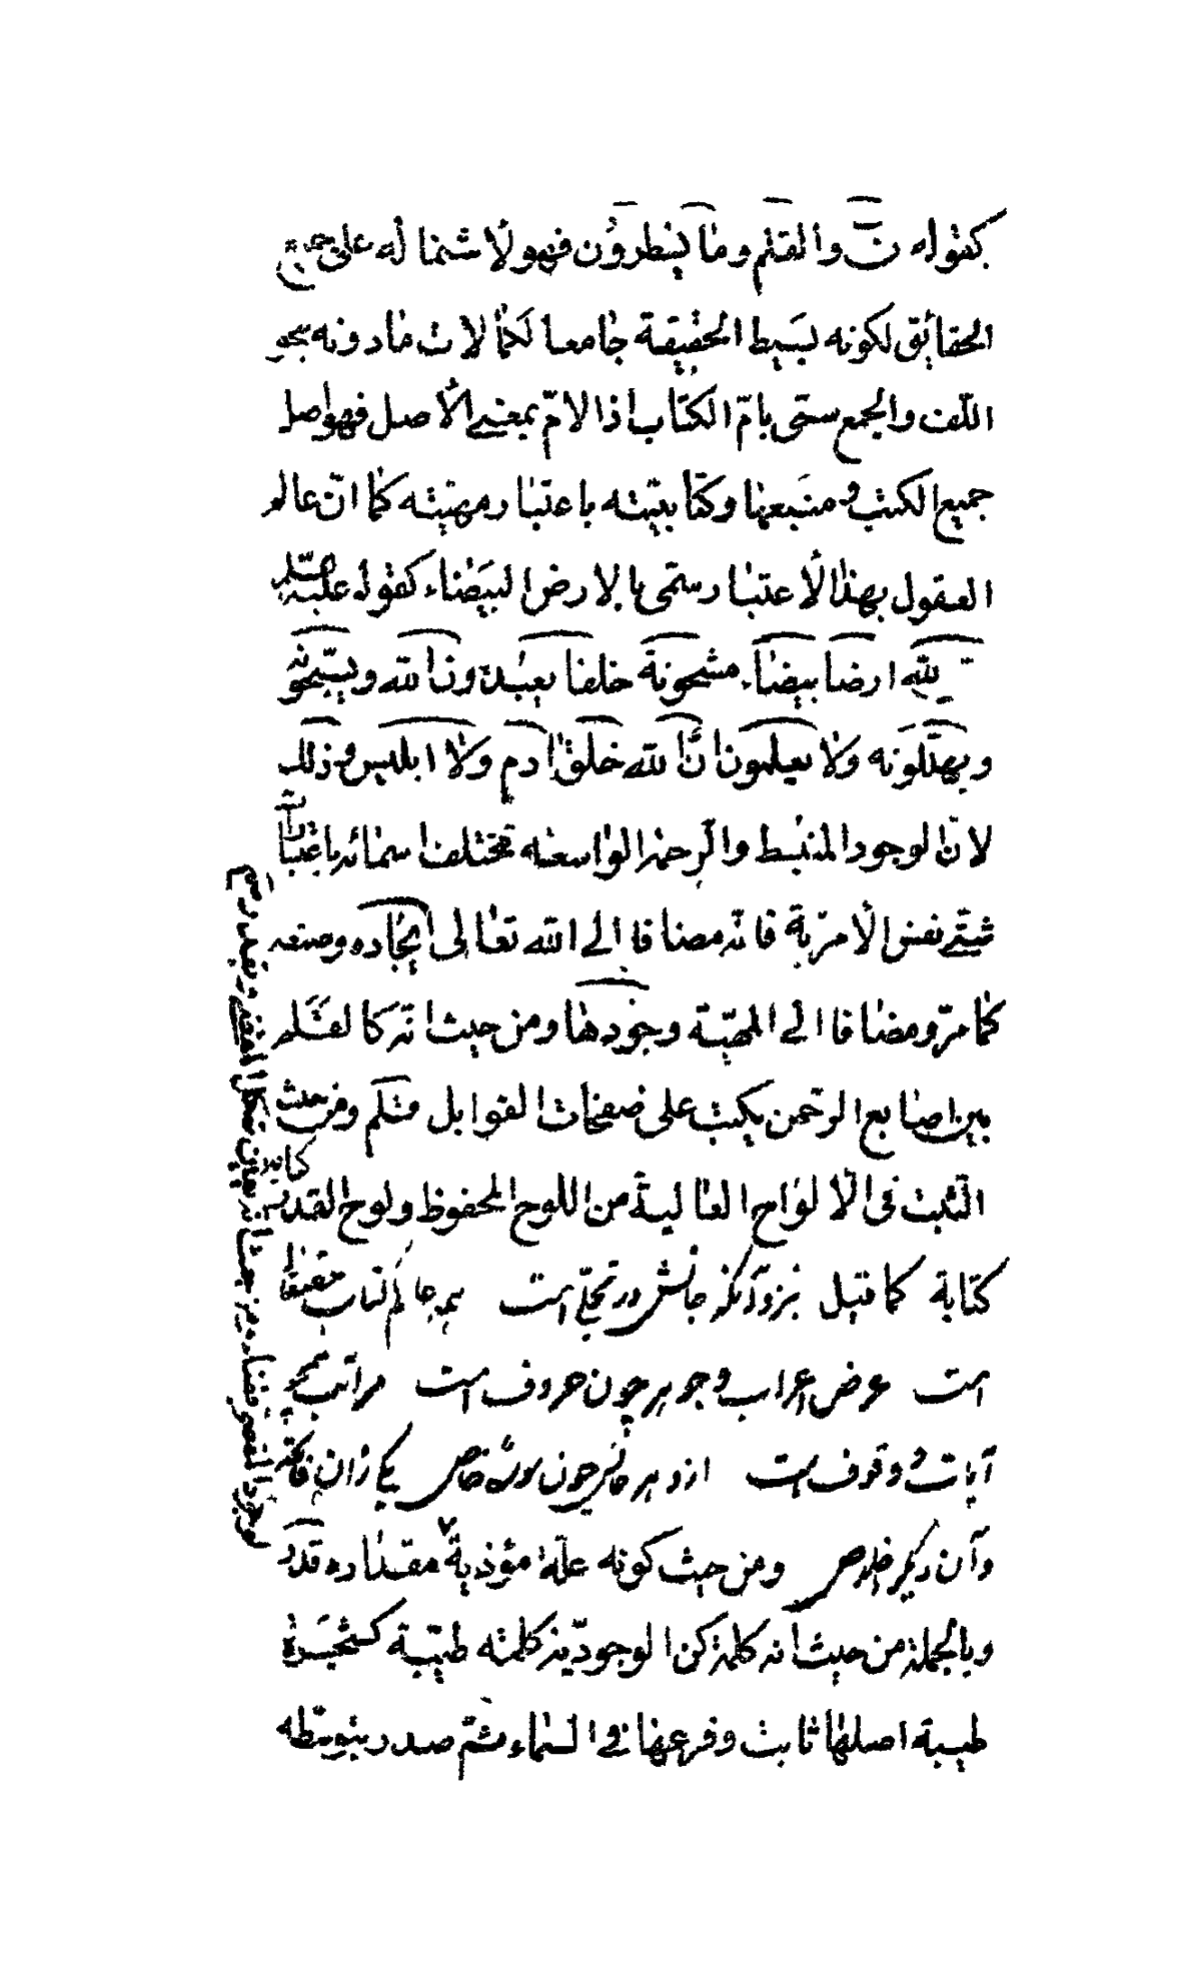 كقوله ن والقلم وما يسطرون فهو لاشتماله على جميع
الحقائق لكونه بسيط الحقيقة جامعا لكمالات مادونه بنحو
اللف والجمع سمى بام الكتاب اذ الام بمعنى الاصل فهو اصل
جميع الكتب ومنبعها وكتابيته باعتبار مهيته كما ان عالم
العقول بهذا الاعتبار سمى بالارض البيضاء كقوله عليه السلم
ان لله ارضا بيضاء مشحونة خلقا يعبدون الله ويسبحونه
ويهللونه ولا يعلمون ان الله خلق ادم ولا ابليس وذلك
لان الوجود المنبسط والرحمة الواسعة تختلف اسمائه باعتبارات
شتى نفس الامرية فانه مضافا الى الله تعالى ايجاده وصنعه
كما مر ومضافا الى المهية وجودها ومن حيث انه كالقلم
بين اصابع الرحمن يكتب على صفحات القوابل قلم ومن حيث
الثبت فى الالواح العالية من اللوح المحفوظ ولوح القدر
كتابة كما قيل بنزد آنكه جانش در تجلى است همه عالم كتاب حقتعالى
است عرض اعراب وجوهر چون حروف است مراتب همچو
آيات وقوف است ازو هر عالمى چون سوره خاص يكى زان فاتحه
وآن ديگر اخلاص ومن حيث كونه علة مؤذية مقداره قدر
وبالجملة من حيث انه كلمة كن الوجودية كلمة طيبة كشجرة
طيبة اصلها ثابت وفرعها في السماء ثم صدر بتوسطه